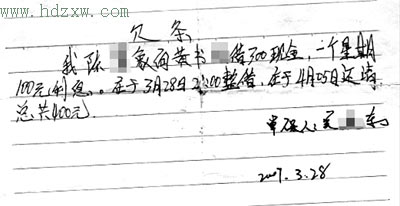 www.hdzxw.com
欠条
我陈 象向黄书 借300现金,一个星期
100元利息。在于3月28日 2:00整借,在于4月05日还清
总共400元.
2007.3.28